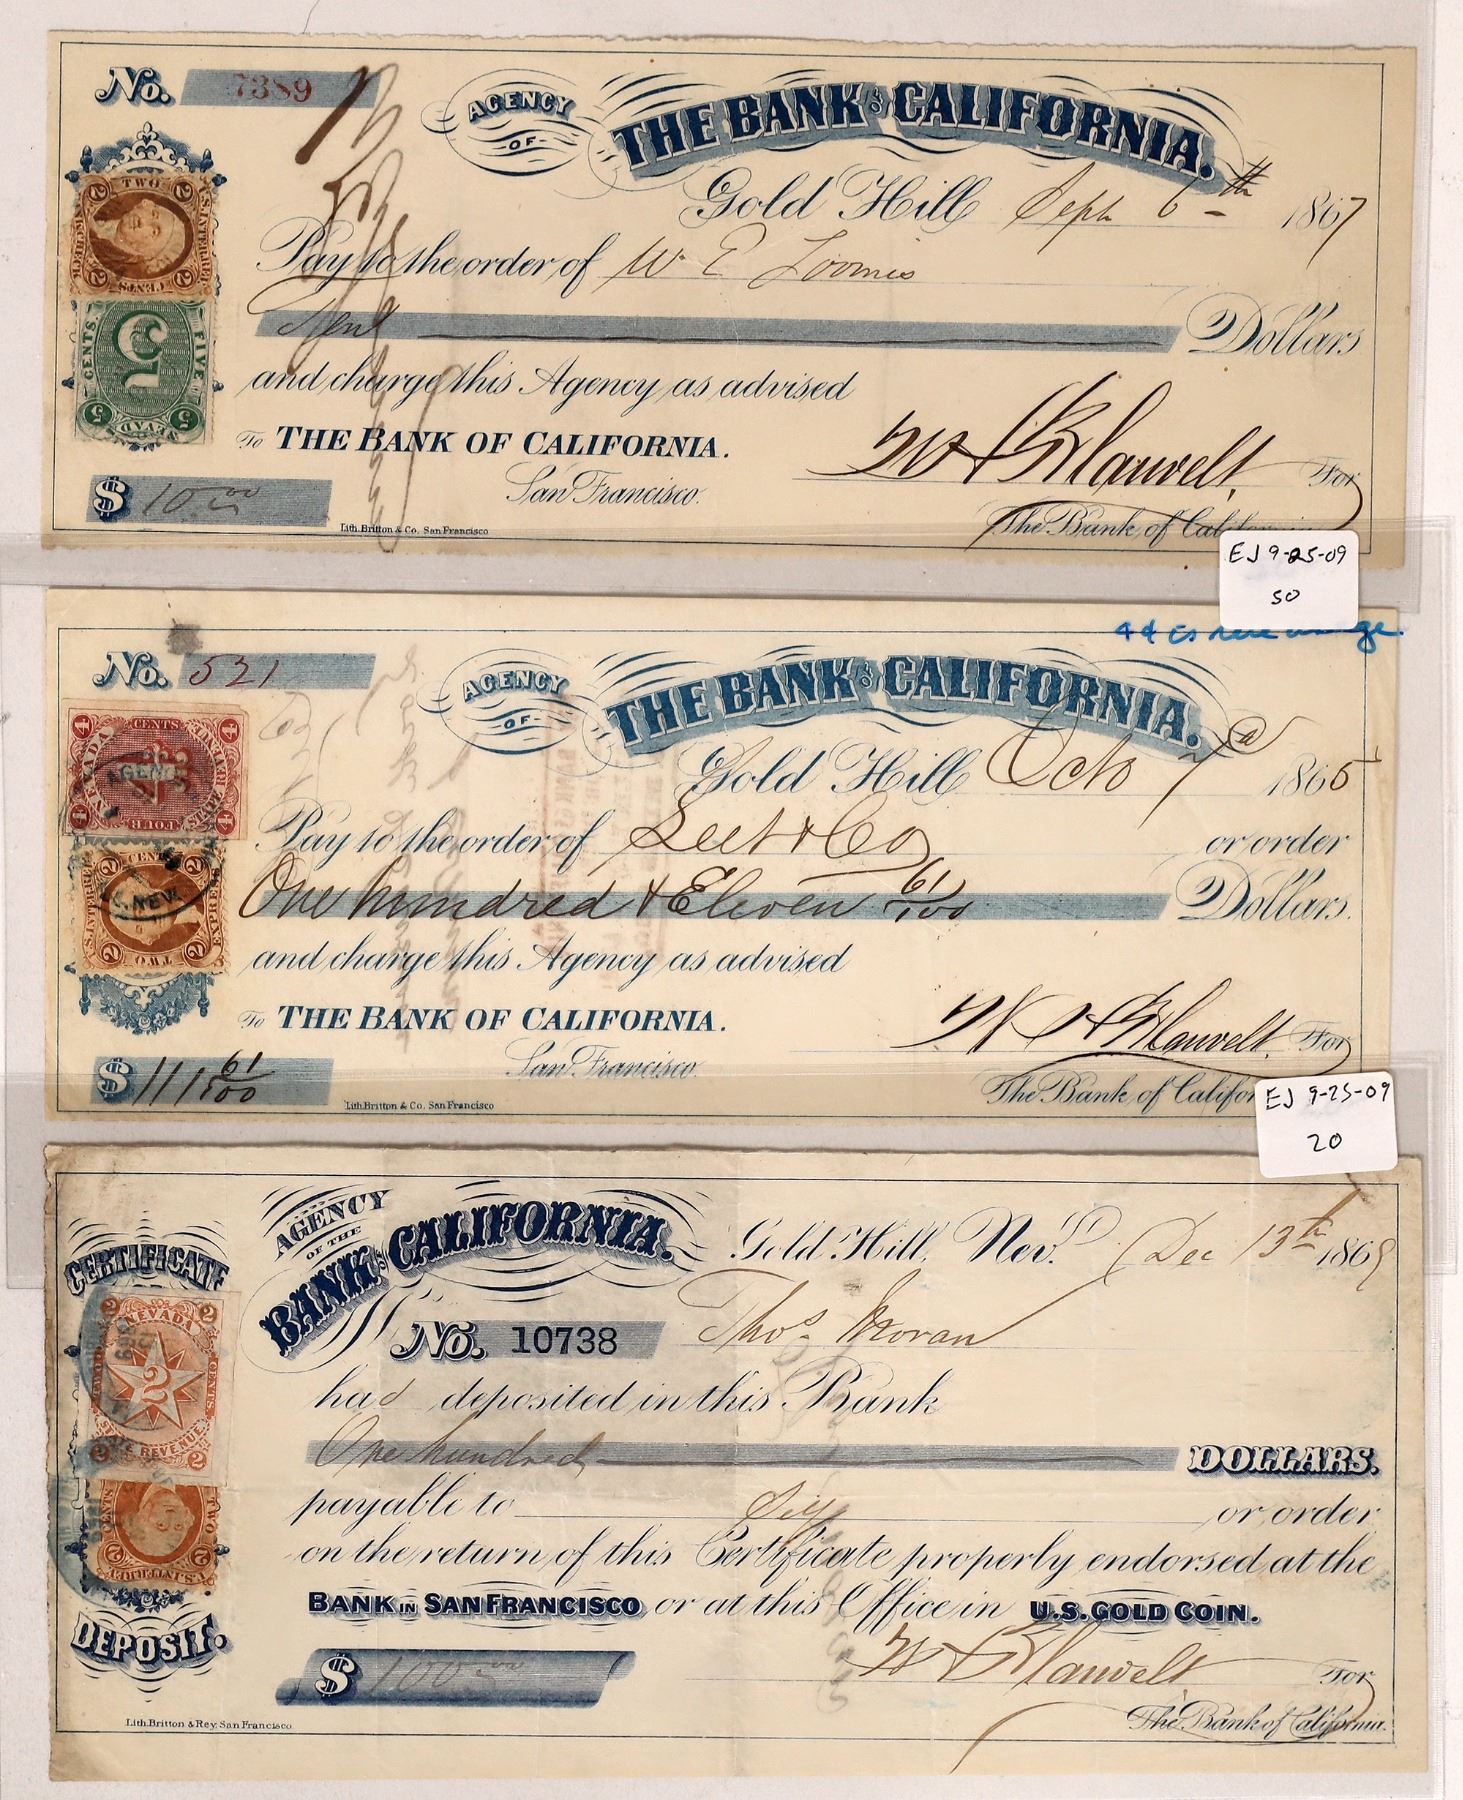 No. 7389
AGENCY OF THE BANK OF CALIFORNIA.
Gold Hill Sept 6th 1867
Pay to the order of W E Loomis
Ten Dollars
and charge this Agency as advised
To THE BANK OF CALIFORNIA.
San Francisco.
For
The Bank of California
$ 10.00
Lith. Britton & Co. San Francisco
TWO
U.S. INTER. REV.
2 2
2 2
CENTS
CENTS 5 FIVE
5 5
NEVADA
EJ 9-25-09
50
No. 521
AGENCY OF THE BANK OF CALIFORNIA.
Gold Hill Octo 7 1865
Pay to the order of or order
One hundred & Eleven 61/100 Dollars.
and charge this Agency as advised
To THE BANK OF CALIFORNIA.
San Francisco.
For
The Bank of Califor
$ 111 61/100
Lith. Britton & Co. San Francisco
4 CENTS 4
NEVADA
AGENC
4 FOUR 4
2 CENTS 2
EXPRESS
NEV.
2 TWO 2
EJ 9-25-09
20
CERTIFICATE
AGENCY OF THE BANK OF CALIFORNIA.
Gold Hill, Nev. Dec 13th 1869
No. 10738 Thos Moran
had deposited in this Bank
One hundred DOLLARS.
payable to Self or order
on the return of this Certificate properly endorsed at the
BANK IN SAN FRANCISCO or at this Office in U.S. GOLD COIN.
DEPOSIT.
$ 100.00
For
The Bank of California.
Lith. Britton & Rey. San Francisco
2 NEVADA 2
CENTS
2
STATE REVENUE
2 2
CENTS TWO
2 2